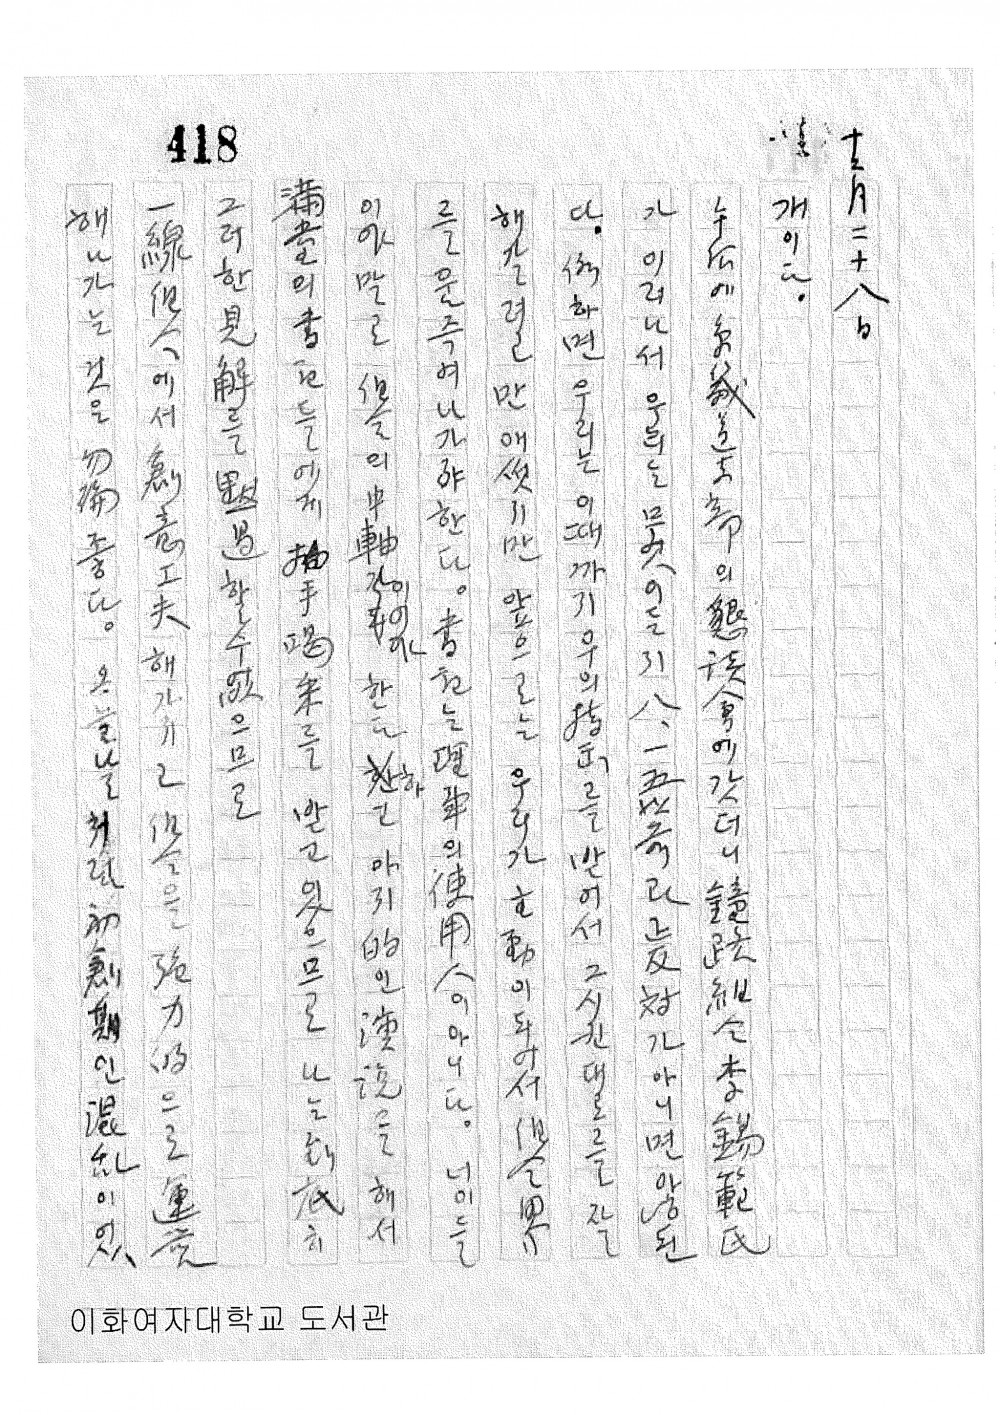 418
十二月二十八日
개이다.
午后에 京義道支部의 懇談會에 갓더니 鐘路組合 李錫範氏
가 이러나서 우리는 무엇이든지 八、一五 前과 正反対가 아니면 않된
다. 従하면 우리는 이때까지 우의 指示를 받어서 그 시킨대로를 잘
해갈려고만 애썻지만 앞으로는 우리가 主動이 되여서 組合界
를 움즉여 나가야 한다. 書記는 理事의 使用人이 아니다. 너이들
이야말로 組合의 中軸이이야 한다 하고 야지的인 演説을 해서
満堂의 書記들에게 拍手喝采를 받고 있으므로 나는 到底히
그러한 見解를 黙過할 수 없으므로
一線組合에서 創意工夫해가지고 組合을 強力的으로 運営
해나가는 것은 勿論 좋다. 오늘날처럼 初創期인 混乱이 있
이화여자대학교 도서관